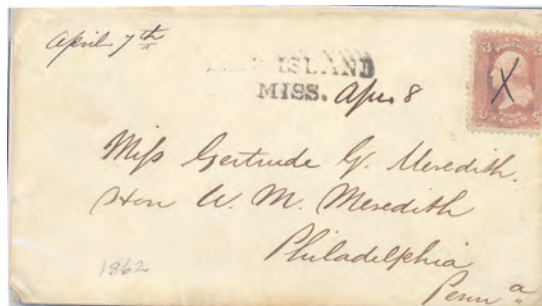 April 7th
ISLAND
MISS. Apr. 8
3 3
CENTS
X
Miss Gertrude G. Meredith.
Hon W. M. Meredith
Philadelphia
Penna
1862